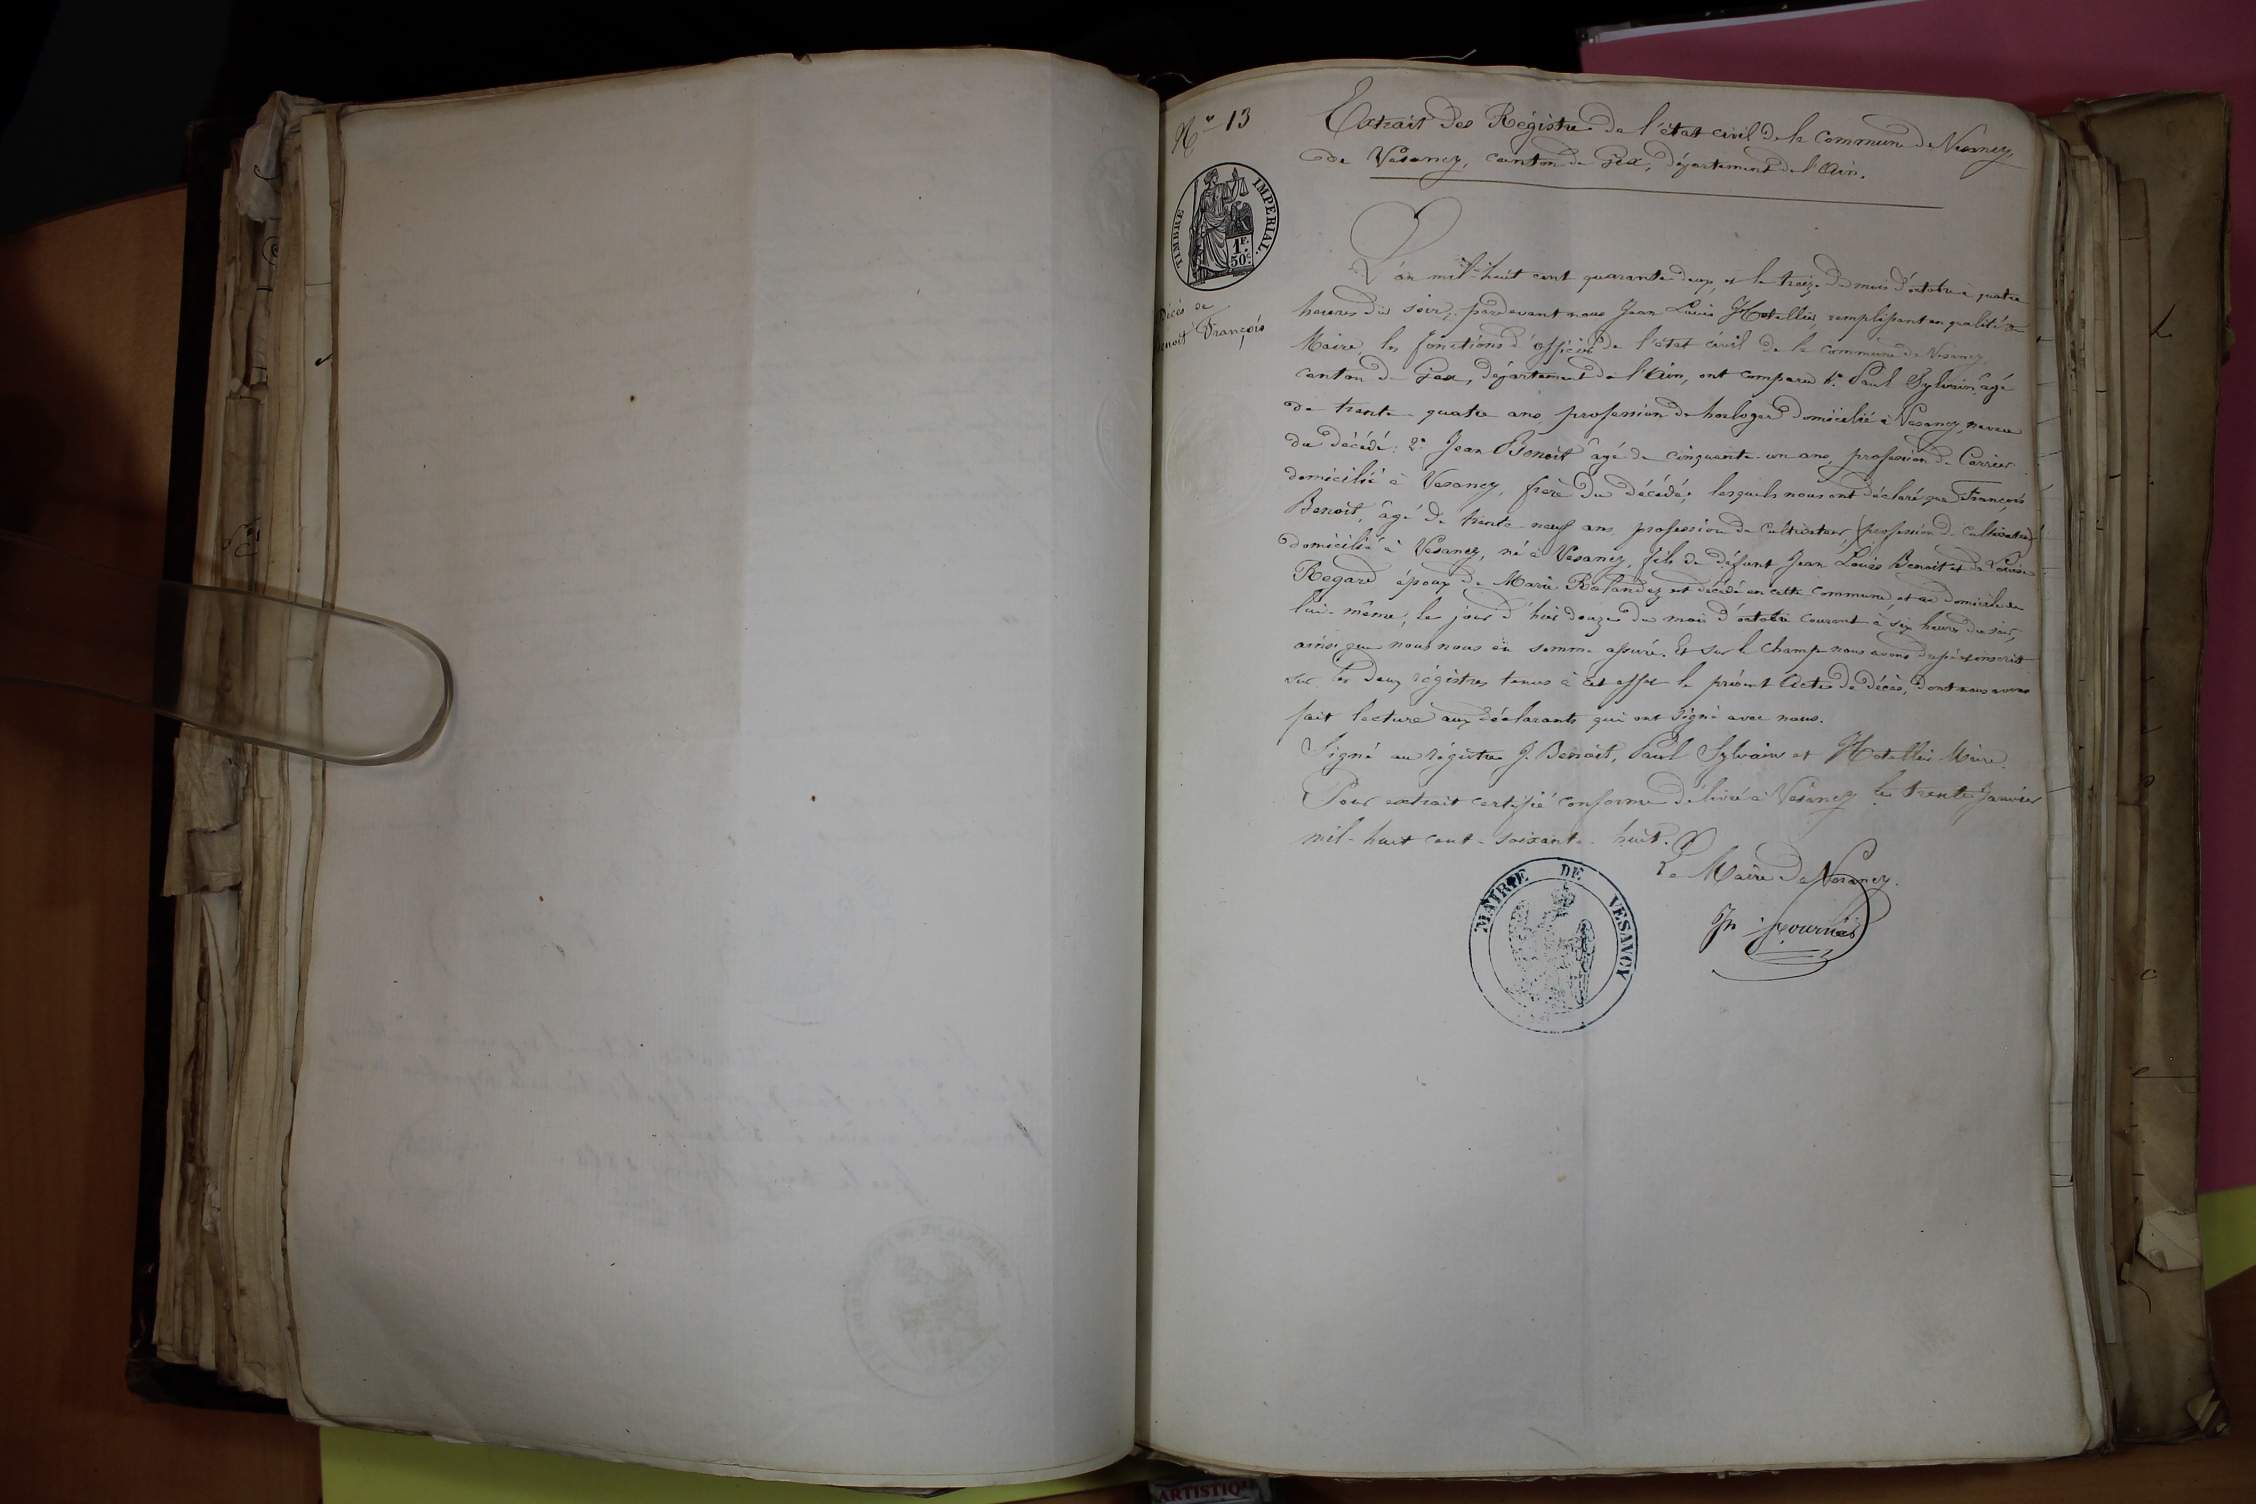 N° 13
Extrait des Régistre de l'état civil de la Commune de Vesancy
de Vesancy, canton de Gex, département de l'Ain.
TIMBRE IMPERIAL.
1F. 50c.
Décès de
Benoit François
L'an mil-huit cent quarante deux, et le treize du mois d'octobre à quatre
heures du soir, pardevant nous Jean Louis Hotellier, remplissant en qualité de
Maire, les fonctions d'officier de l'état civil de la commune de Vesancy,
canton de Gex, département de l'Ain, ont comparu 1° Paul Sylvain, âgé
de trente-quatre ans, profession de horloger domicilié à Vesancy, neveu
du décédé: 2° Jean Benoit âgé de cinquante-un ans, profession de Carrier
domicilié à Vesancy, frère du décédé; lesquels nous ont déclaré que François
Benoit, âgé de trente-neuf ans, profession de cultivateur, (profession de cultivateur)
domicilié à Vesancy, né à Vesancy, fils de défunt Jean Louis Benoit et de Louise
Regard époux de Marie Rolandez est décédé en cette commune, et au domicile de
lui-même, le jour d'hier douze du mois d'octobre courant à six heures du soir,
ainsi que nous nous en somme assuré. Et sur le champ nous avons inscrit
sur les deux régistres tenus à cet effet le présent Acte de décès, dont nous avons
fait lecture aux déclarants qui ont signé avec nous.
Signé au régistre J. Benoit, Paul Sylvain et Hotellier Maire.
Pour extrait certifié conforme délivré à Vesancy le trente Janvier
mil-huit cent-soixante-huit.
Le Maire de Vesancy.
MAIRIE DE VESANCY
Fournier
ARTISTIQ